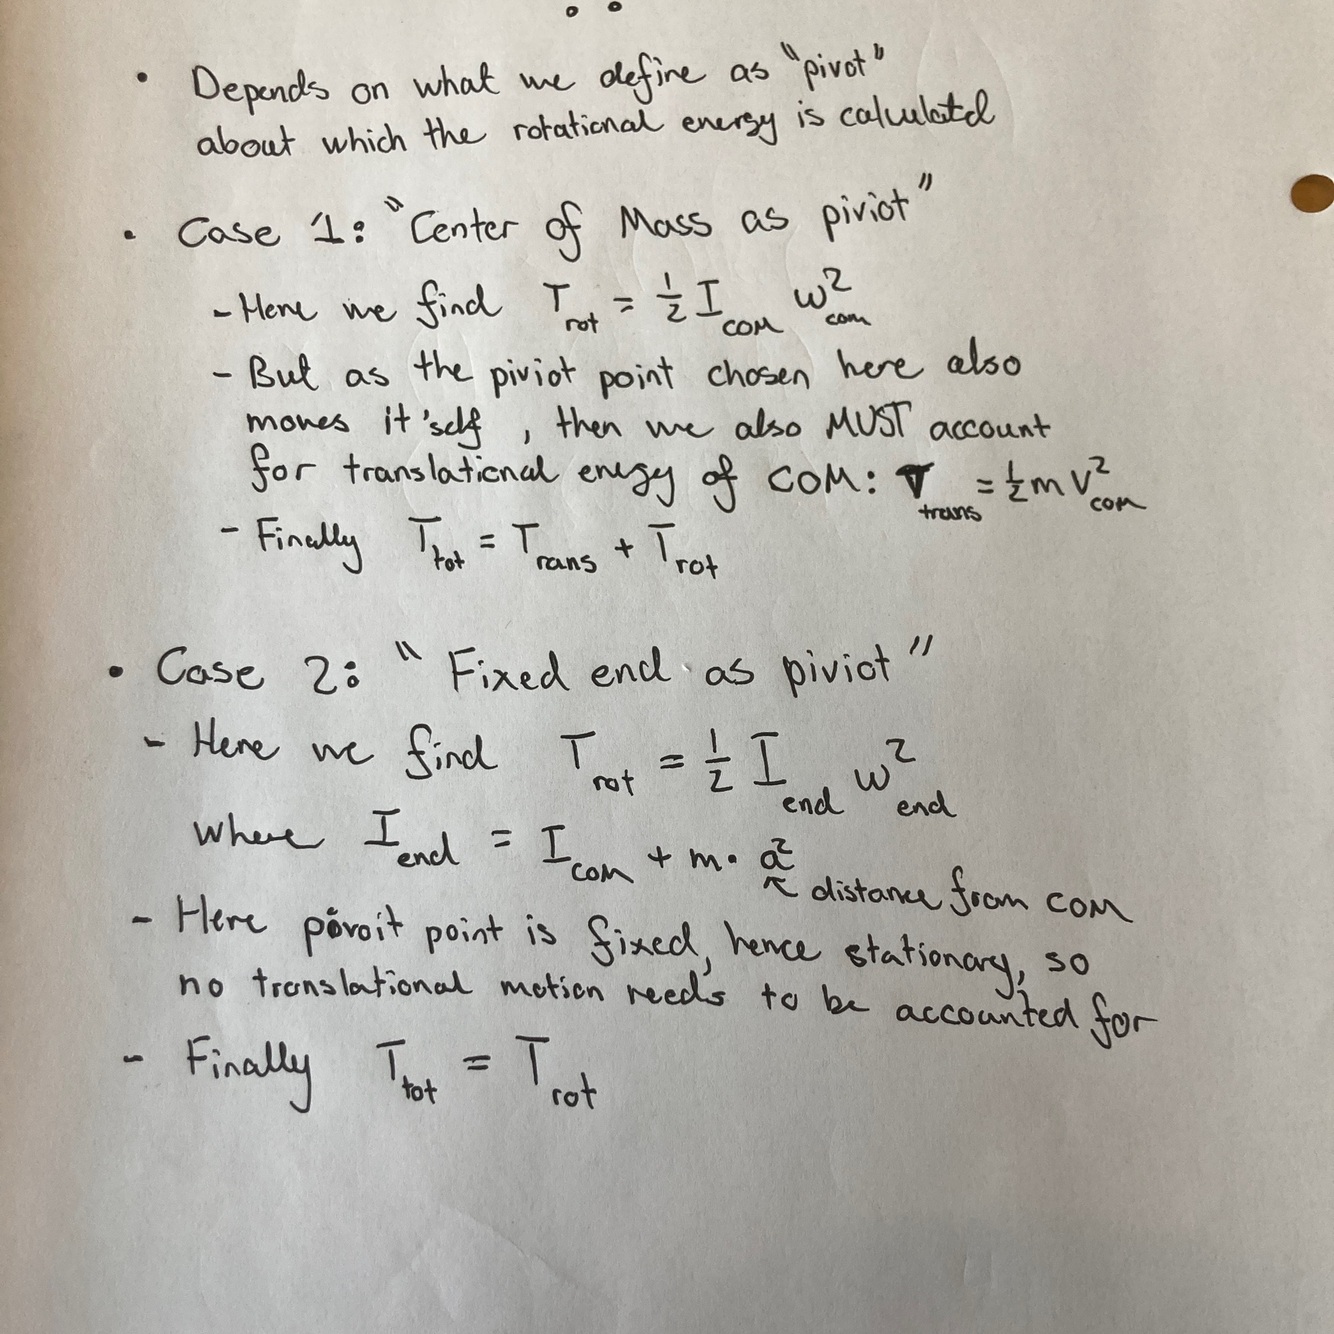 • Depends on what we define as "pivot"
about which the rotational energy is calculatd
• Case 1: "Center of Mass as piviot"
- Here we find T_rot = 1/2 I_COM ω²_com
- But as the piviot point chosen here also
moves it'self, then we also MUST account
for translational enegy of COM: T_trans = 1/2 m v²_com
- Finally T_tot = T_rans + T_rot
• Case 2: "Fixed end as piviot"
- Here we find T_rot = 1/2 I_end ω²_end
where I_end = I_COM + m · a²
↖ distance from COM
- Here pivoit point is fixed, hence stationary, so
no translational motion needs to be accounted for
- Finally T_tot = T_rot